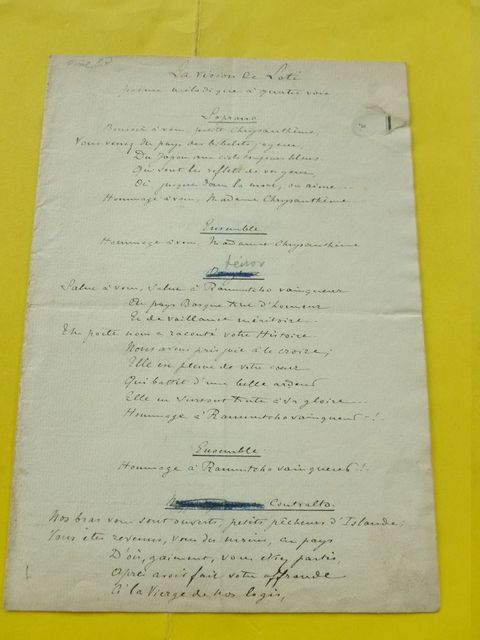 La Vision de Loti
poème mélodique à quatre voix
Soprano
à vous, petite Chrysanthème,
Vous venez du pays des bibelots, joyeux,
Du Japon aux ciels toujours bleus
Qui sont les reflets de vos yeux,
Où jusque dans la mort, on aime...
Hommage à vous, Madame Chrysanthème
Ensemble
Hommage à vous, Madame Chrysanthème
ténor
Salue à vous, salue à Ramuntcho vainqueur
Au pays Basque terre d'honneur
Et de vaillance méritoire.
Un poète nous a raconté votre Histoire.
Nous avons pris joie à le croire;
Elle est pleine de votre cœur
Qui battit d'une belle ardeur
Elle est surtout toute à sa gloire...
Hommage à Ramuntcho vainqueur!!
Ensemble
Hommage à Ramuntcho vainqueur!!
Contralto.
Nos bras vous sont ouverts, petits pêcheurs d'Islande;
Vous êtes revenus, vous du marins, au pays
D'où, gaiment, vous étiez partis,
Après avoir fait votre offrande
A la Vierge de nos logis,